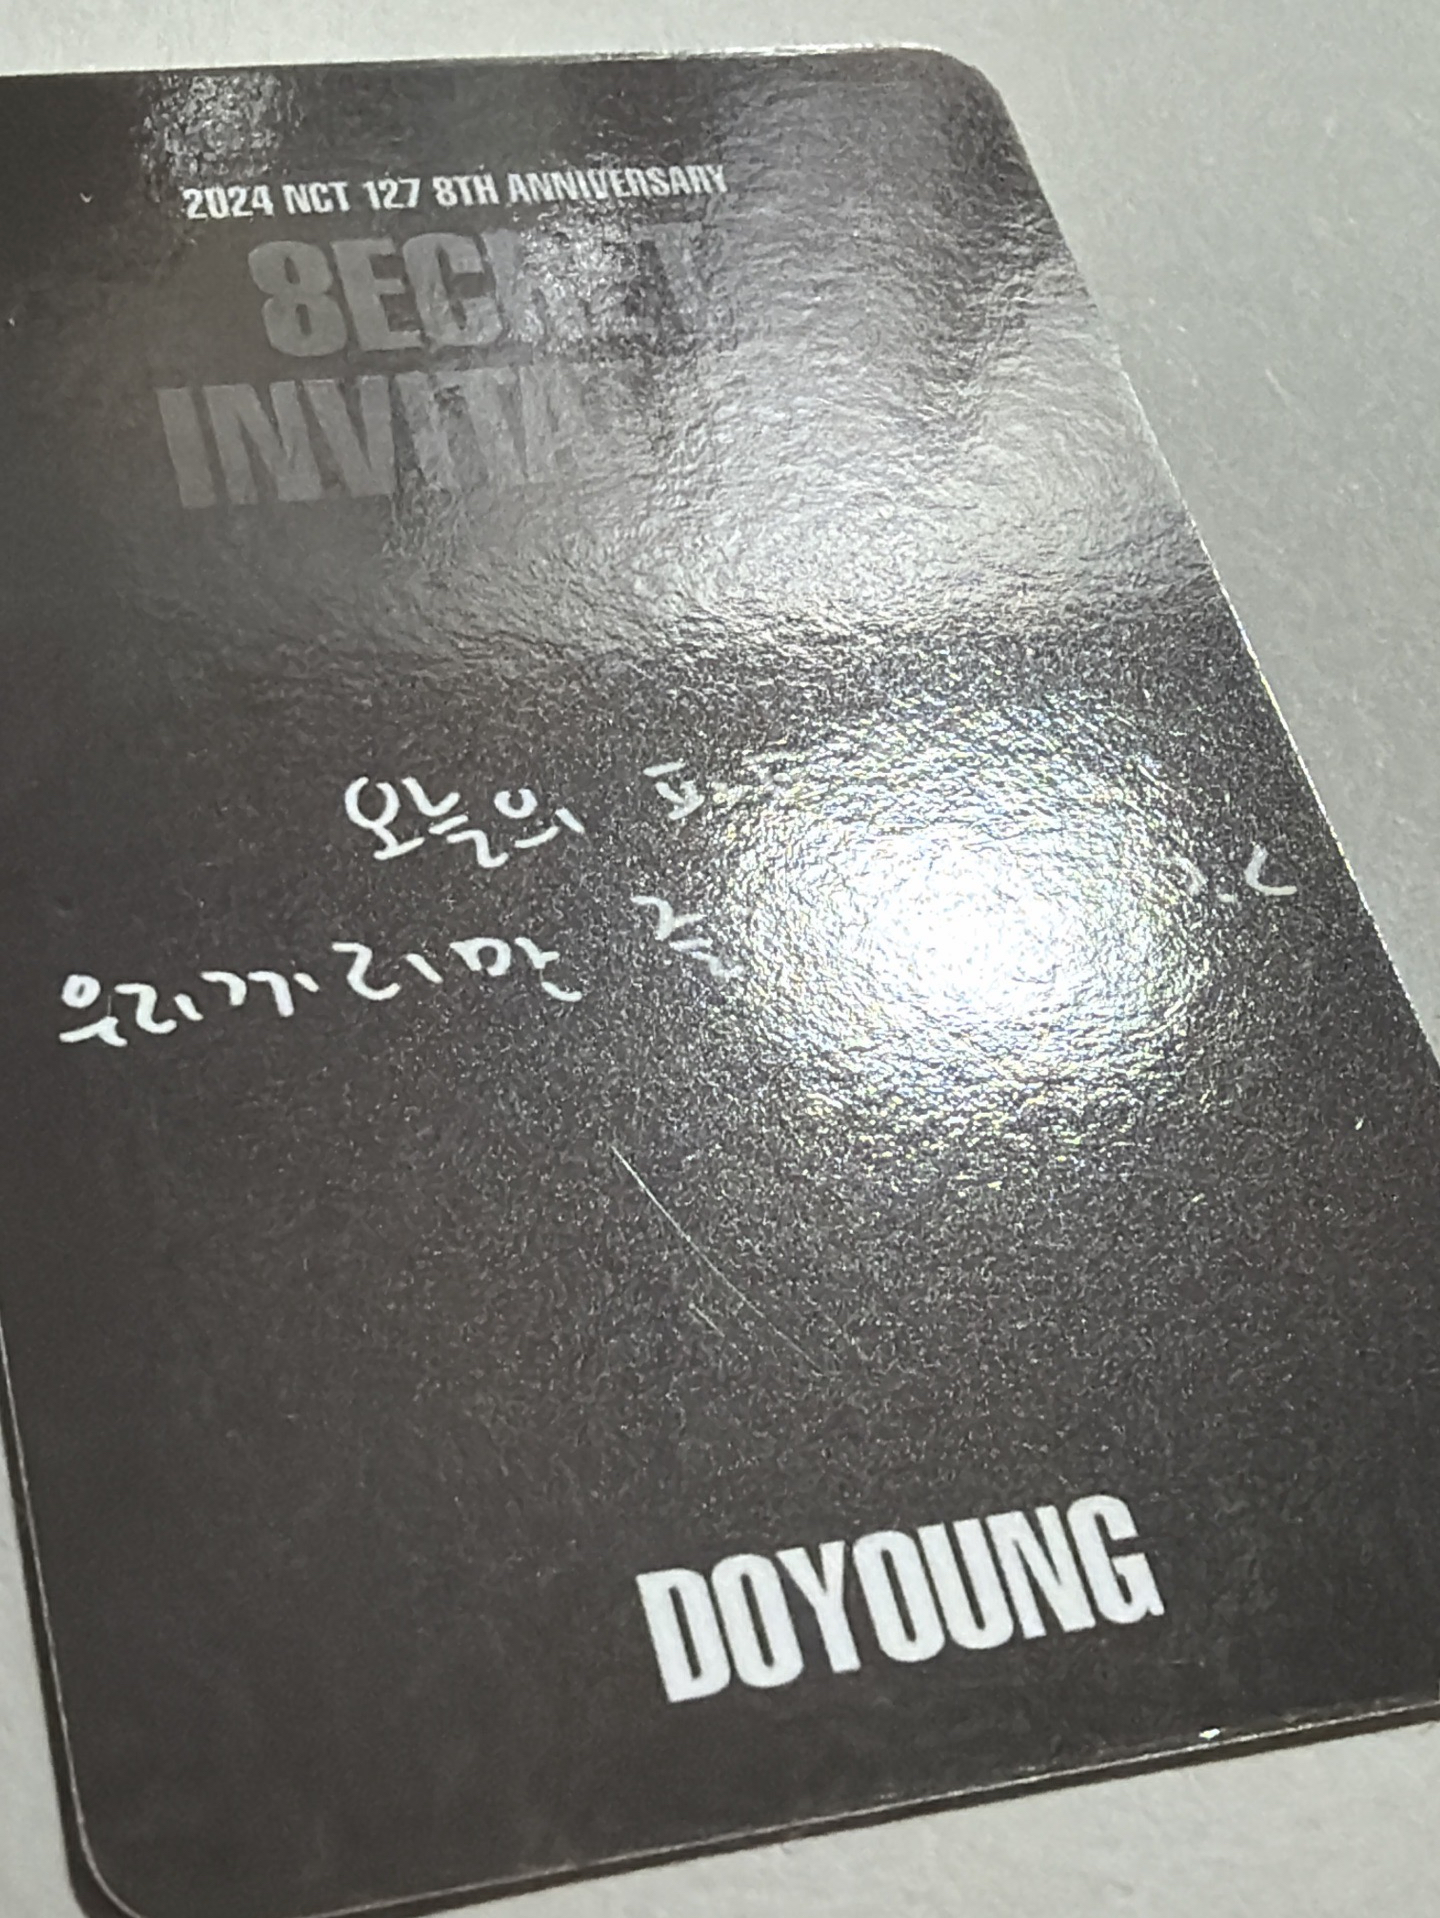 2024 NCT 127 8TH ANNIVERSARY
8ECRET
INVITA
오늘의
우리끼리만
DOYOUNG